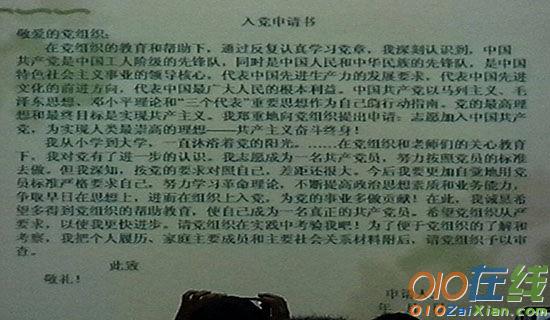 入党申请书
敬爱的党组织:
在党组织的教育和帮助下，通过反复认真学习党章，我深刻认识到，中国
共产党是中国工人阶级的先锋队，同时是中国人民和中华民族的先锋队，是中国
特色社会主义事业的领导核心，代表中国先进生产力的发展要求，代表中国先进
文化的前进方向，代表中国最广大人民的根本利益。中国共产党以马列主义、毛
泽东思想、邓小平理论和“三个代表”重要思想作为自己的行动指南。党的最高理
想和最终目标是实现共产主义。我郑重地向党组织提出申请：志愿加入中国共产
党，为实现人类最崇高的理想——共产主义奋斗终身！
我从小学到大学，一直沐浴着党的阳光。……在党组织和老师们的关心教育
下，我对党有了进一步的认识。我志愿成为一名共产党员，努力按照党员的标准
去做。但我深知，按党的要求对照自己，差距还很大。今后我要更加自觉地用党
员标准严格要求自己，努力学习革命理论，不断提高政治思想素质和业务能力，
争取早日在思想上，进而在组织上入党，为党的事业多做贡献！在此，我诚恳希
望多得到党组织的帮助教育，使自己成为一名真正的共产党员。希望党组织从严
要求，以使我更快进步。请党组织在实践中考验我吧！为了便于党组织的了解和
考察，我把个人履历、家庭主要成员和主要社会关系材料附后，请党组织予以审
查。
此致
敬礼！
申请人
年
010在线
010ZaiXian.com